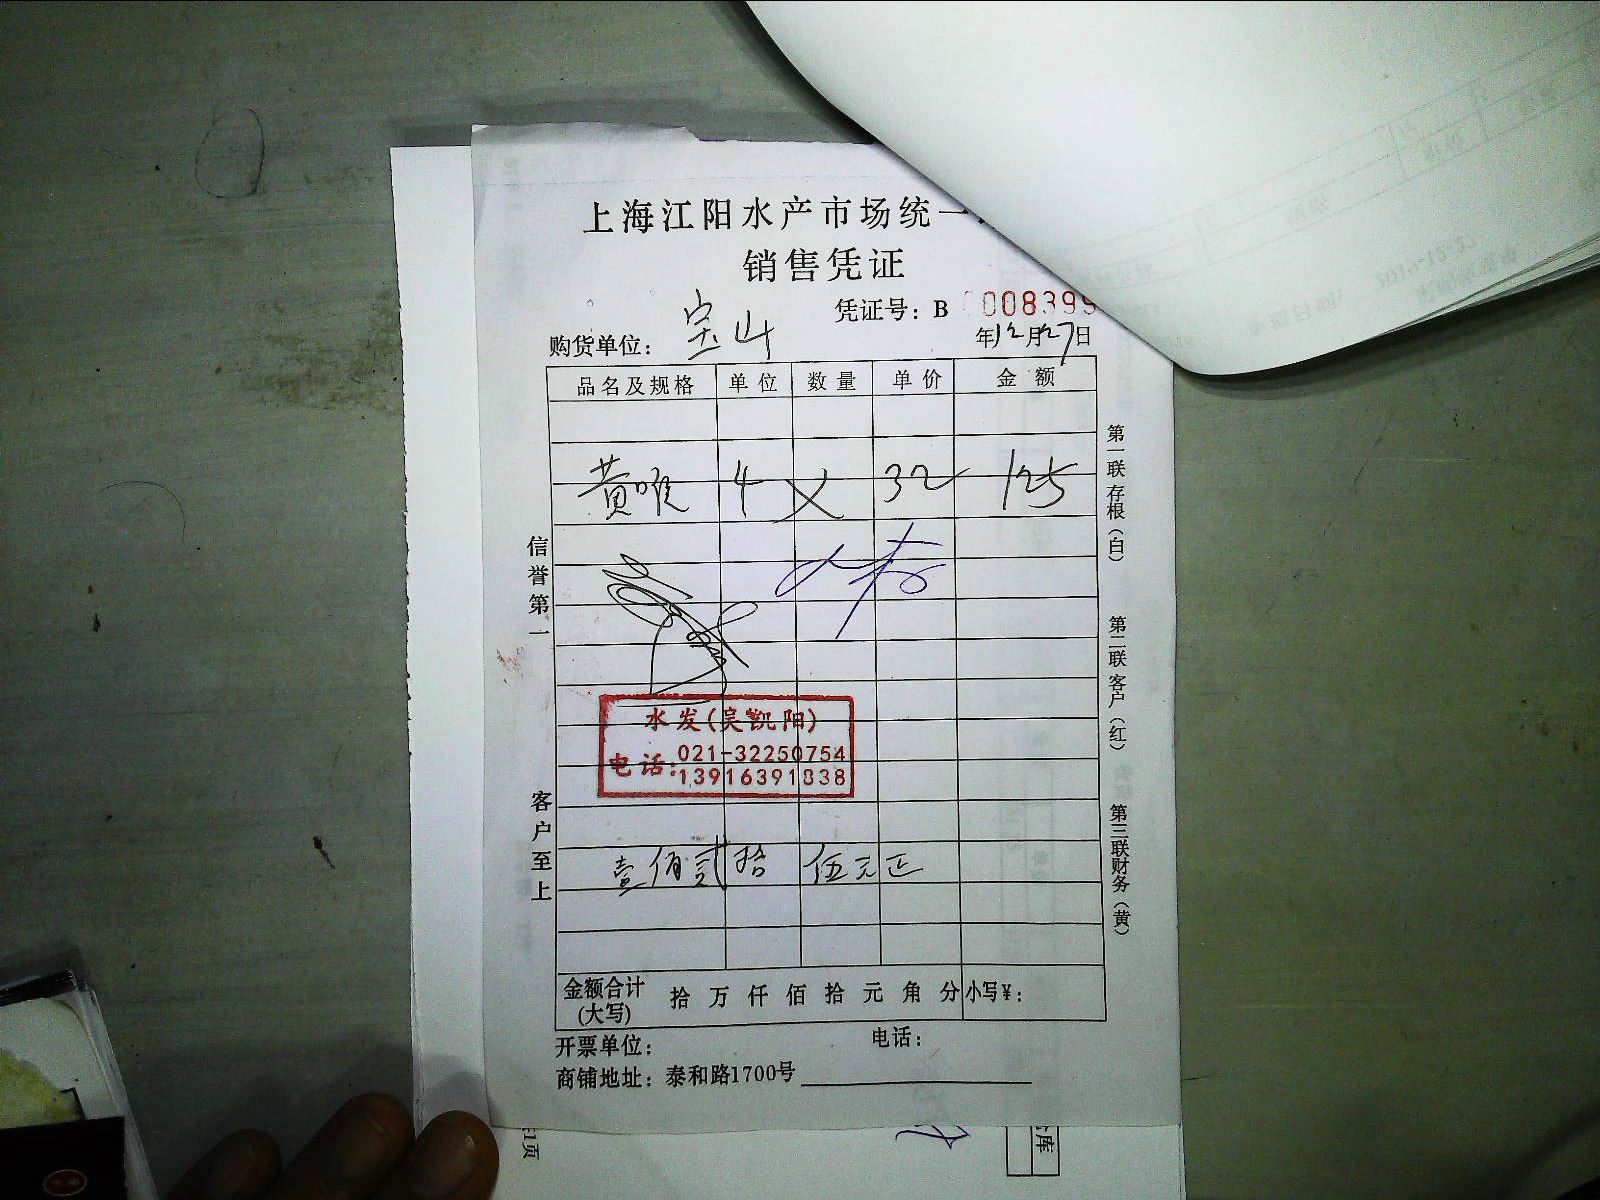 上海江阳水产市场统一
销售凭证
凭证号：B 008399
购货单位：宝山
年12月27日
品名及规格 单位 数量 单价 金额
黄唯 4 × 32 125
水发(吴凯阳)
电话：021-32250754
13916391838
壹佰贰拾伍元正
金额合计(大写) 拾 万 仟 佰 拾 元 角 分 小写￥：
开票单位： 电话：
商铺地址：泰和路1700号
信誉第一
客户至上
第一联存根（白）
第二联客户（红）
第三联财务（黄）